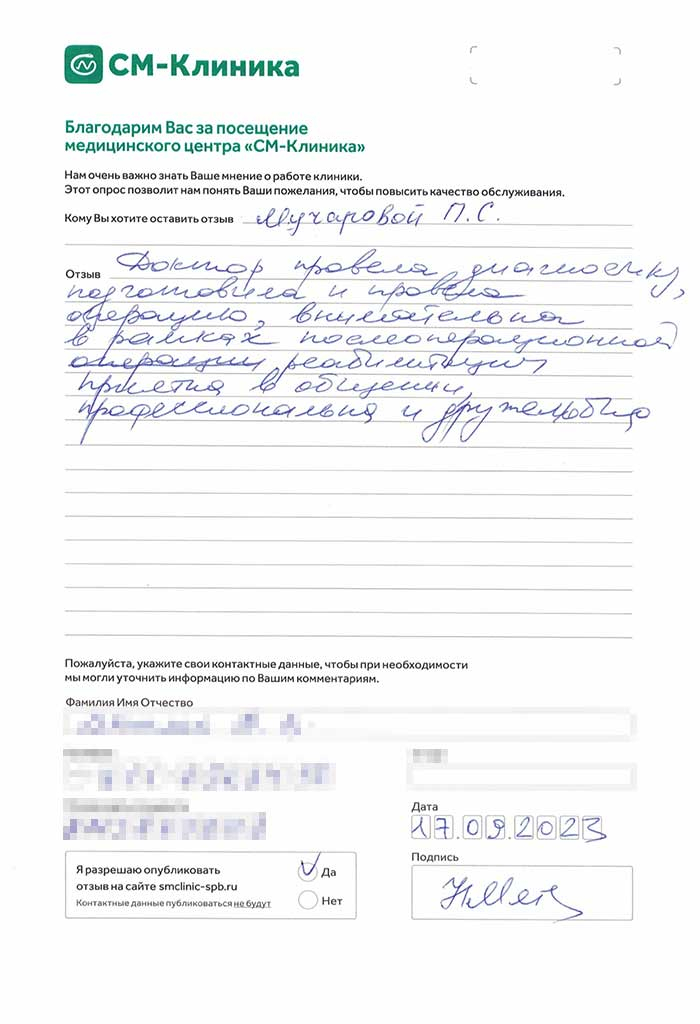 СМ-Клиника
Благодарим Вас за посещение
медицинского центра «СМ-Клиника»
Нам очень важно знать Ваше мнение о работе клиники.
Этот опрос позволит нам понять Ваши пожелания, чтобы повысить качество обслуживания.
Кому Вы хотите оставить отзыв Мучаровой П.С.
Отзыв Доктор провела диагностику,
подготовила и провела
операцию, внимательна
в рамках послеоперационной
операции реабилитации
приятна в общении,
профессиональна и дружелюбна
Пожалуйста, укажите свои контактные данные, чтобы при необходимости
мы могли уточнить информацию по Вашим комментариям.
Фамилия Имя Отчество
Дата
17.09.2023
Я разрешаю опубликовать
отзыв на сайте smclinic-spb.ru
Контактные данные публиковаться не будут
Да
Нет
Подпись